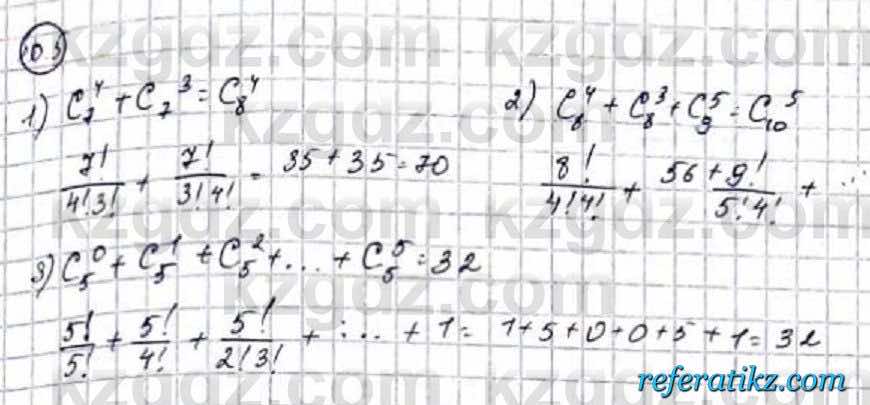 10.3
1) C₇⁴ + C₇³ = C₈⁴
7!/4!3! + 7!/3!4! = 35 + 35 = 70
2) C₈⁴ + C₈³ + C₉⁵ = C₁₀⁵
8!/4!4! + 56 + 9!/5!4! + ...
3) C₅⁰ + C₅¹ + C₅² + ... + C₅⁵ = 32
5!/5! + 5!/4! + 5!/2!3! + ... + 1 = 1+5+0+0+5+1 = 32
kzgdz.com
referatikz.com